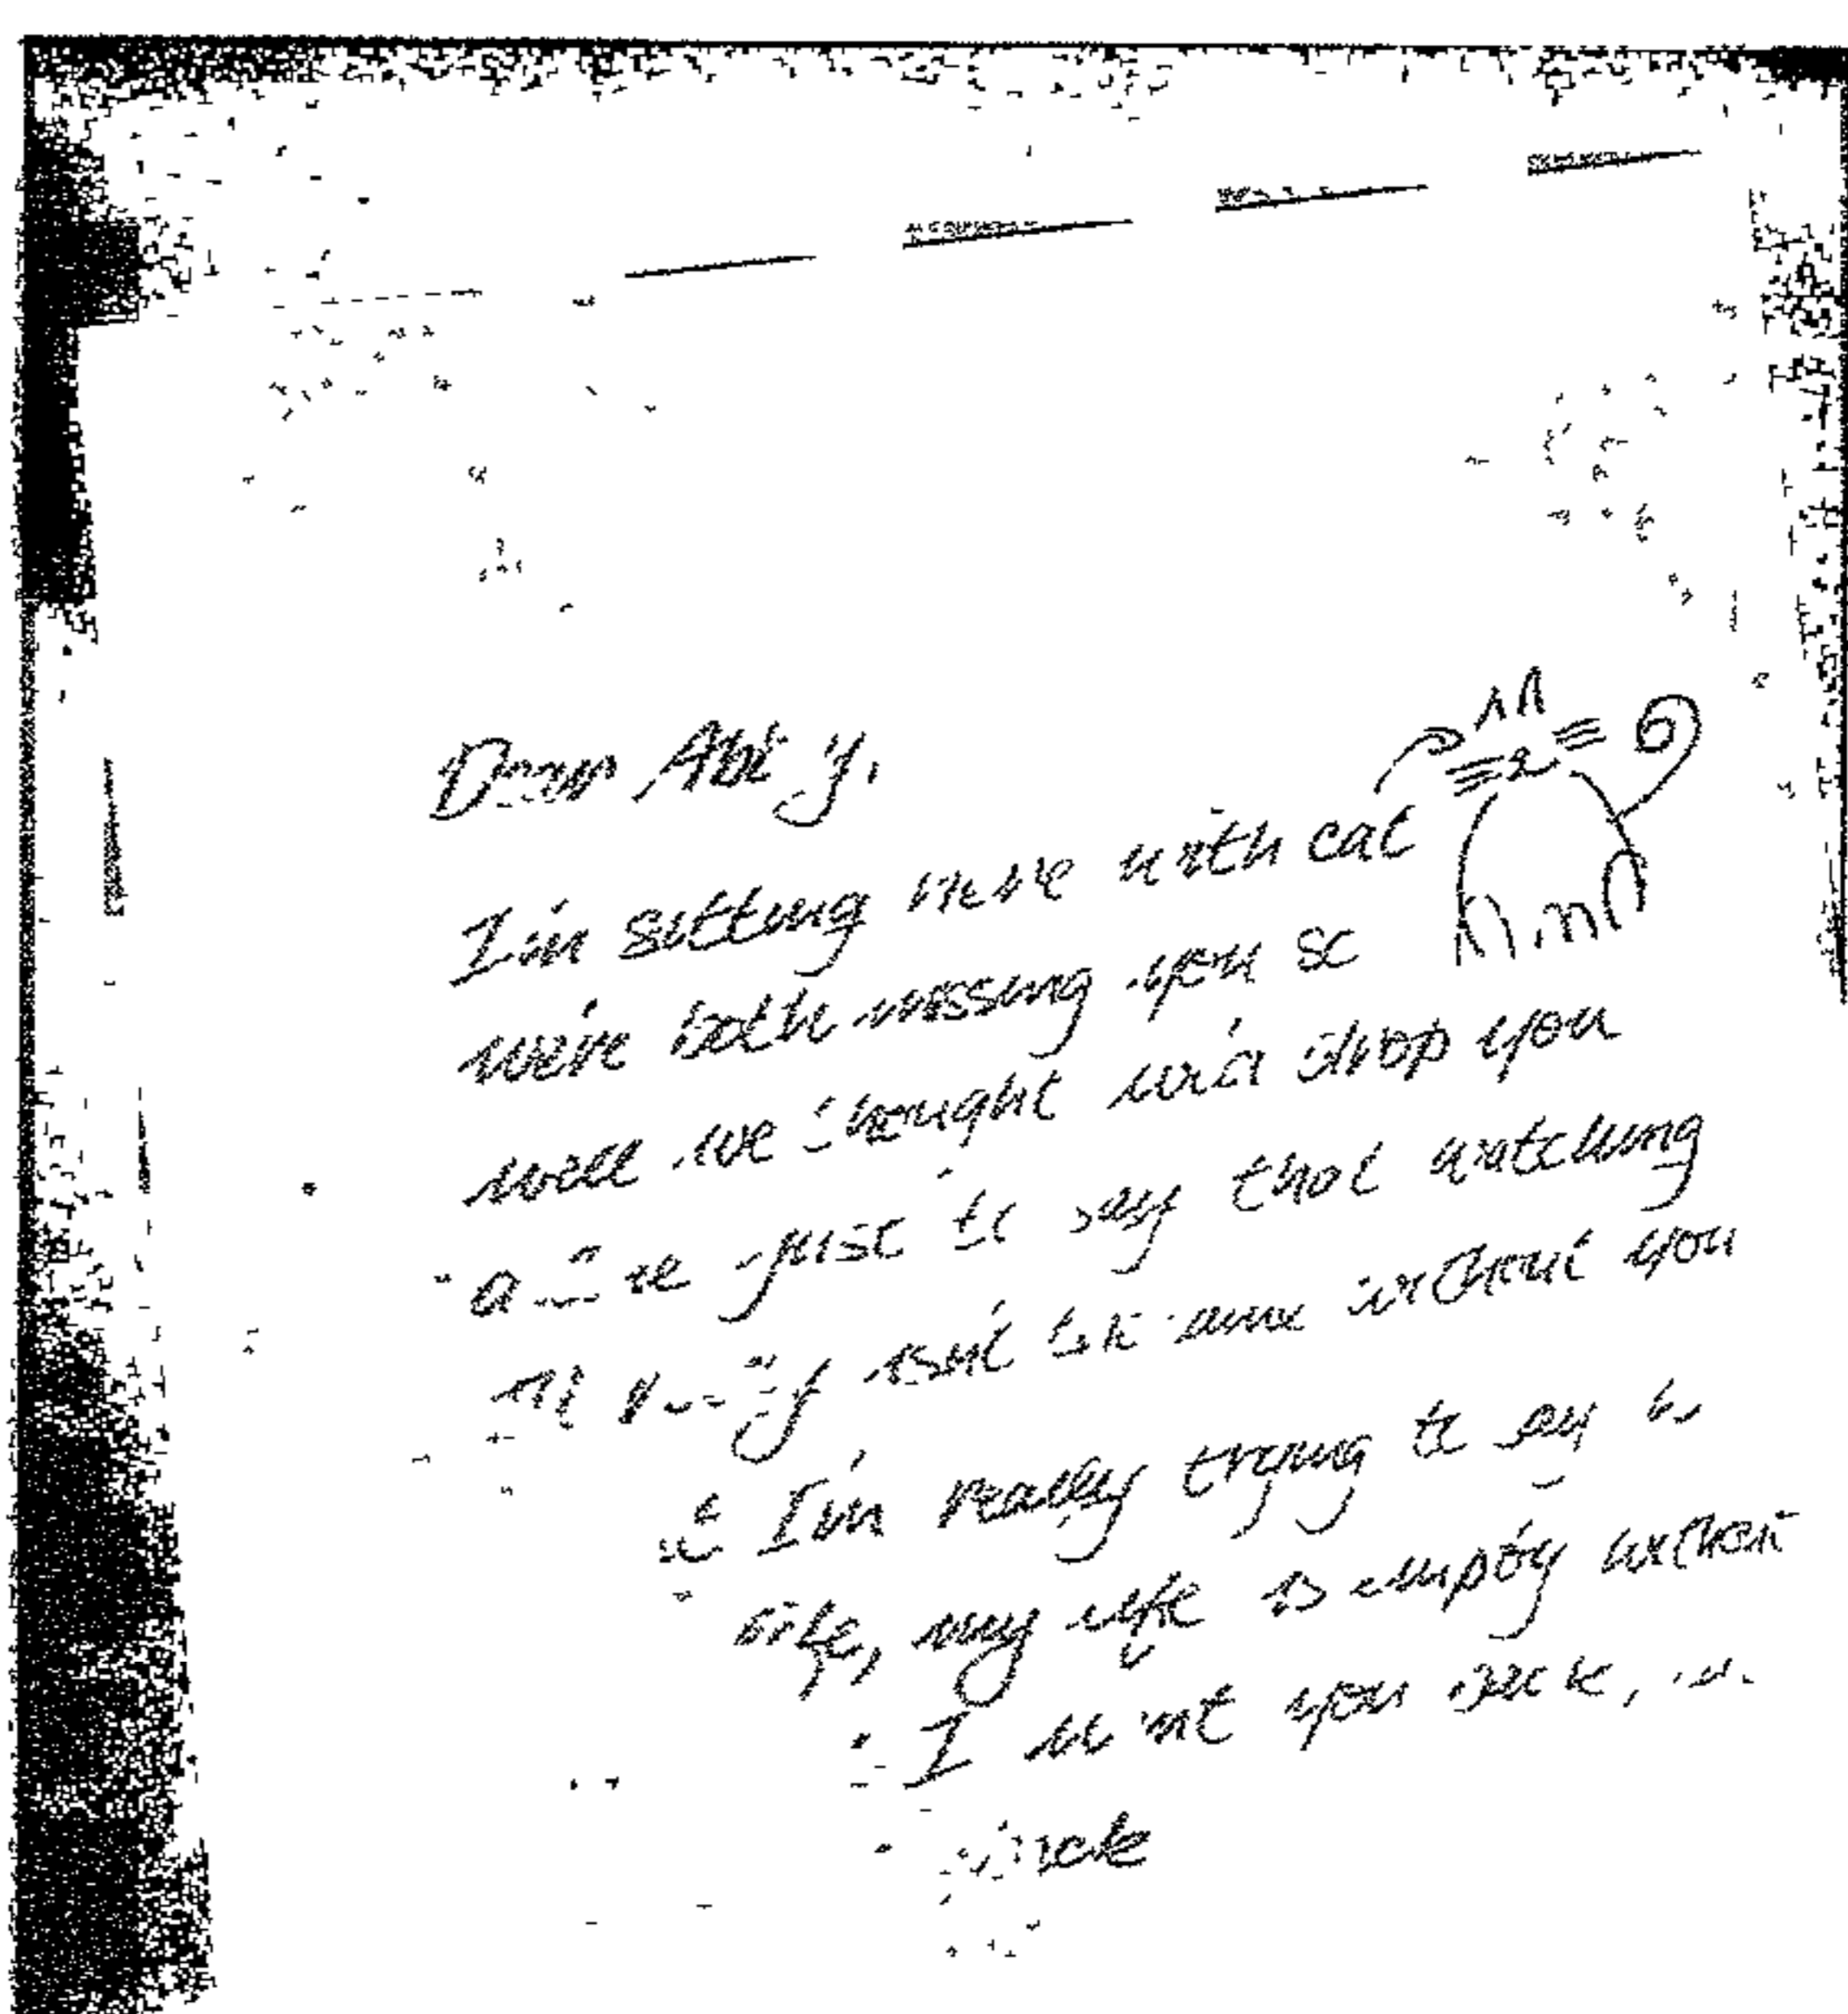 Dear
I'm sitting here with cat
we're both missing you so
well we thought we'd drop you
a line just to say that watching
isn't the same without you
I'm really trying to say is
my life is empty without
I want you back,